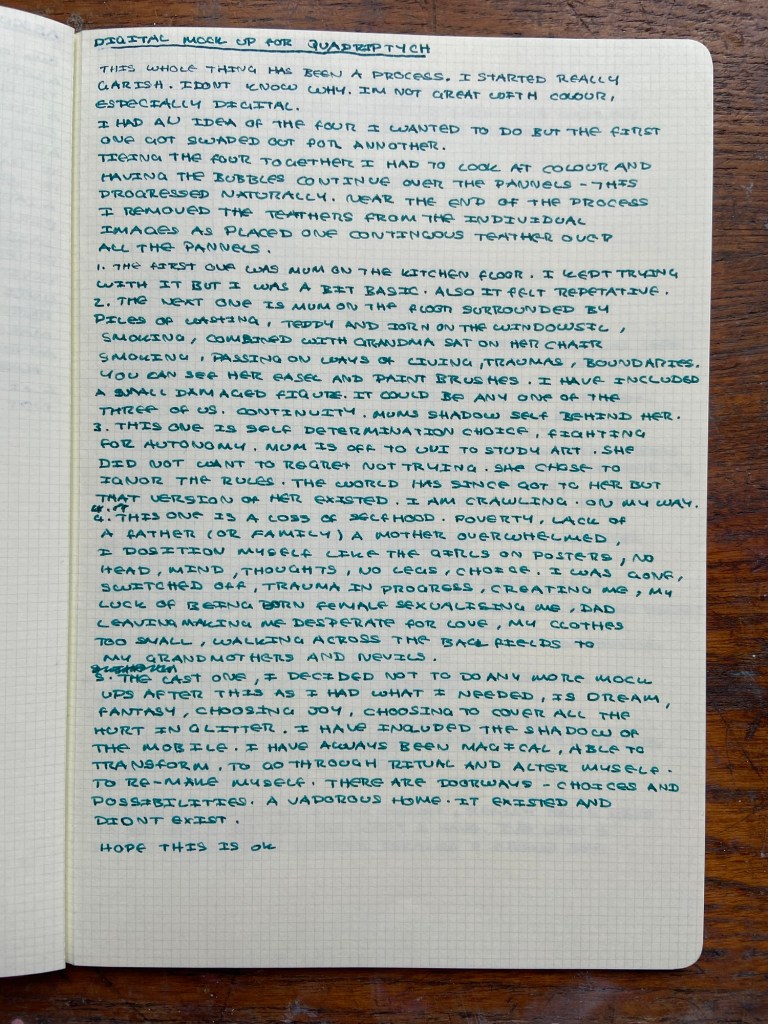 DIGITAL MOCK UP FOR QUADRIPTYCH
THIS WHOLE THING HAS BEEN A PROCESS. I STARTED REALLY
GARISH. I DONT KNOW WHY. IM NOT GREAT WITH COLOUR,
ESPECIALLY DIGITAL.
I HAD AN IDEA OF THE FOUR I WANTED TO DO BUT THE FIRST
ONE GOT SWAPED OUT FOR ANNOTHER.
TIEING THE FOUR TOGETHER I HAD TO LOOK AT COLOUR AND
HAVING THE BUBBLES CONTINUE OVER THE PANNELS - THIS
PROGRESSED NATURALLY. NEAR THE END OF THE PROCESS
I REMOVED THE TEATHERS FROM THE INDIVIDUAL
IMAGES AS PLACED ONE CONTINGOUS TEATHER OVER
ALL THE PANNELS.
1. THE FIRST ONE WAS MUM ON THE KITCHEN FLOOR. I KEPT TRYING
WITH IT BUT I WAS A BIT BASIC. ALSO IT FELT REPETATIVE.
2. THE NEXT ONE IS MUM ON THE FLOOR SURROUNDED BY
PILES OF WASHING, TEDDY AND IORN ON THE WINDOWSIL,
SMOKING, COMBINED WITH GRANDMA SAT ON HER CHAIR
SMOKING, PASSING ON WAYS OF LIVING, TRAUMAS, BOUNDARIES.
YOU CAN SEE HER EASEL AND PAINT BRUSHES. I HAVE INCLUDED
A SMALL DAMAGED FIGURE. IT COULD BE ANY ONE OF THE
THREE OF US. CONTINUITY. MUMS SHADOW SELF BEHIND HER.
3. THIS ONE IS SELF DETERMINATION CHOICE, FIGHTING
FOR AUTONOMY. MUM IS OFF TO UNI TO STUDY ART. SHE
DID NOT WANT TO REGRET NOT TRYING. SHE CHOSE TO
IGNOR THE RULES. THE WORLD HAS SINCE GOT TO HER BUT
THAT VERSION OF HER EXISTED. I AM CRAWLING. ON MY WAY.
4. THIS ONE IS A LOSS OF SELFHOOD. POVERTY, LACK OF
A FATHER (OR FAMILY) A MOTHER OVERWHELMED,
I POSITION MYSELF LIKE THE GIRLS ON POSTERS, NO
HEAD, MIND, THOUGHTS, NO LEGS, CHOICE. I WAS GONE,
SWITCHED OFF, TRAUMA IN PROGRESS, CREATING ME, MY
LUCK OF BEING BORN FEMALE SEXUALISING ME, DAD
LEAVING MAKING ME DESPERATE FOR LOVE, MY CLOTHES
TOO SMALL, WALKING ACROSS THE BACK FIELDS TO
MY GRANDMOTHERS AND NEVILS.
5. THE LAST ONE, I DECIDED NOT TO DO ANY MORE MOCK
UPS AFTER THIS AS I HAD WHAT I NEEDED, IS DREAM,
FANTASY, CHOOSING JOY, CHOOSING TO COVER ALL THE
HURT IN GLITTER. I HAVE INCLUDED THE SHADOW OF
THE MOBILE. I HAVE ALWAYS BEEN MAGICAL, ABLE TO
TRANSFORM, TO GO THROUGH RITUAL AND ALTER MYSELF.
TO RE-MAKE MYSELF. THERE ARE DOORWAYS - CHOICES AND
POSSIBILITIES. A VAPOROUS HOME. IT EXISTED AND
DIDNT EXIST.
HOPE THIS IS OK